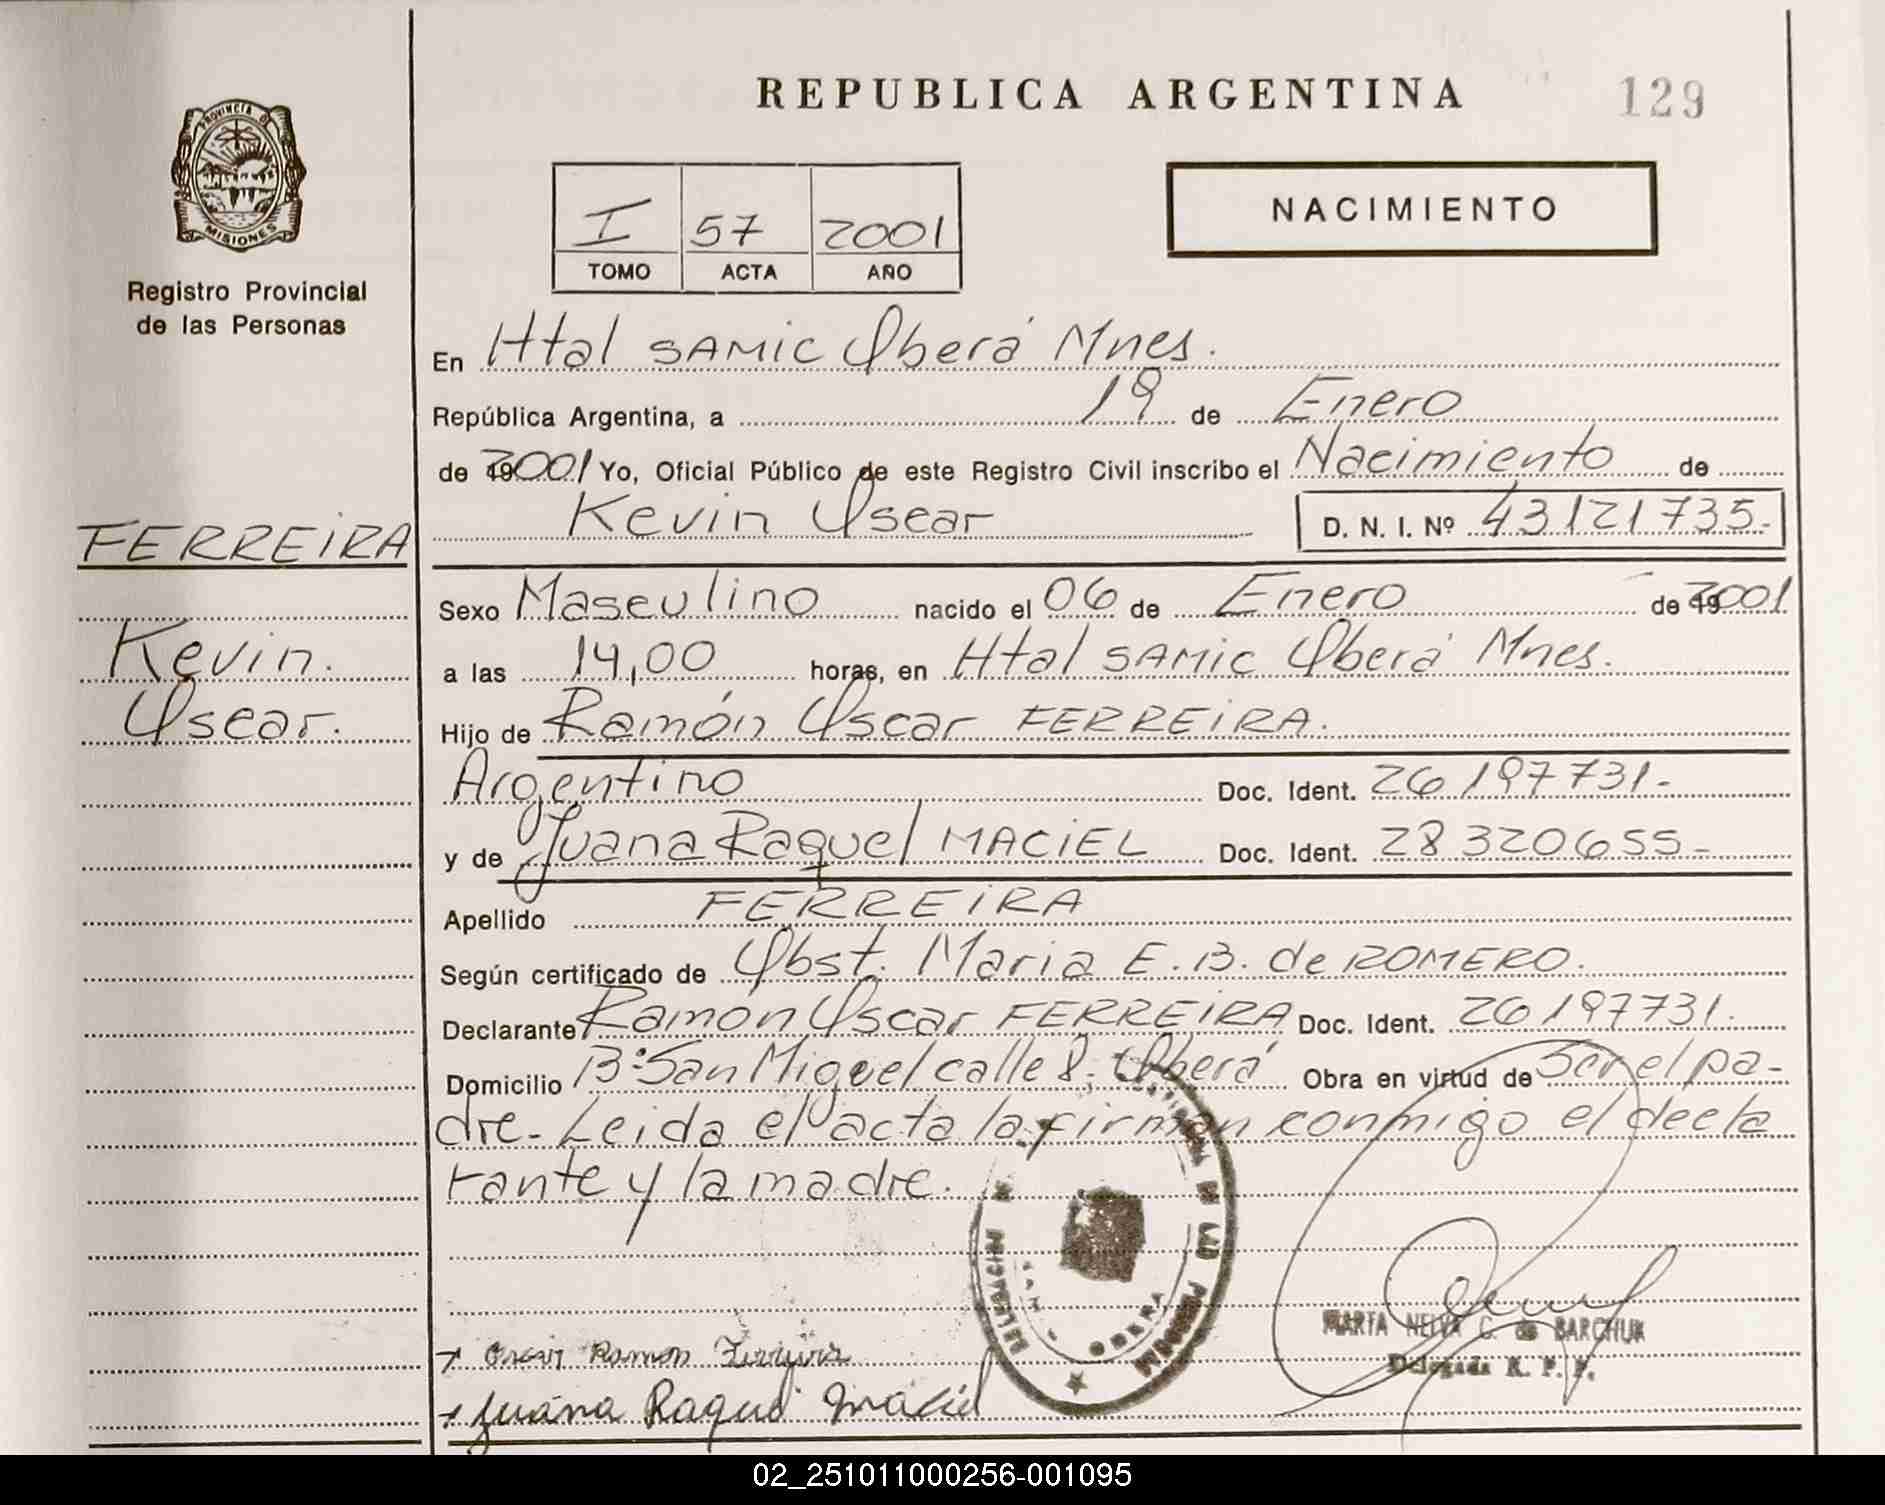 REPUBLICA ARGENTINA
129
PROVINCIA D
MISIONES
Registro Provincial
de las Personas
I 57 2001
TOMO ACTA AÑO
NACIMIENTO
En Htal SAMIC Oberá Mnes.
República Argentina, a 19 de Enero
de 2001 Yo, Oficial Público de este Registro Civil inscribo el Nacimiento de
Kevin Oscar D. N. I. Nº 43121735.-
FERREIRA
Kevin.
Oscar.
Sexo Masculino nacido el 06 de Enero de 2001
a las 14,00 horas, en Htal SAMIC Oberá Mnes.
Hijo de Ramón Oscar FERREIRA.
Argentino Doc. Ident. 26197731.-
y de Juana Raquel MACIEL Doc. Ident. 28320655-
Apellido FERREIRA
Según certificado de Obst. Maria E. B. de ROMERO.
Declarante Ramón Oscar FERREIRA Doc. Ident. 26197731.
Domicilio B: San Miguel calle 8, Oberá Obra en virtud de Ser el pa-
dre- Leida el acta la firman conmigo el decla
rante y la madre.
DELEGACION
OBERA
MARTA NELVA C. de BARCHUK
Delegada R. P. P.
Oscar Ramon Ferreira
Juana Raquel Maciel
02_251011000256-001095